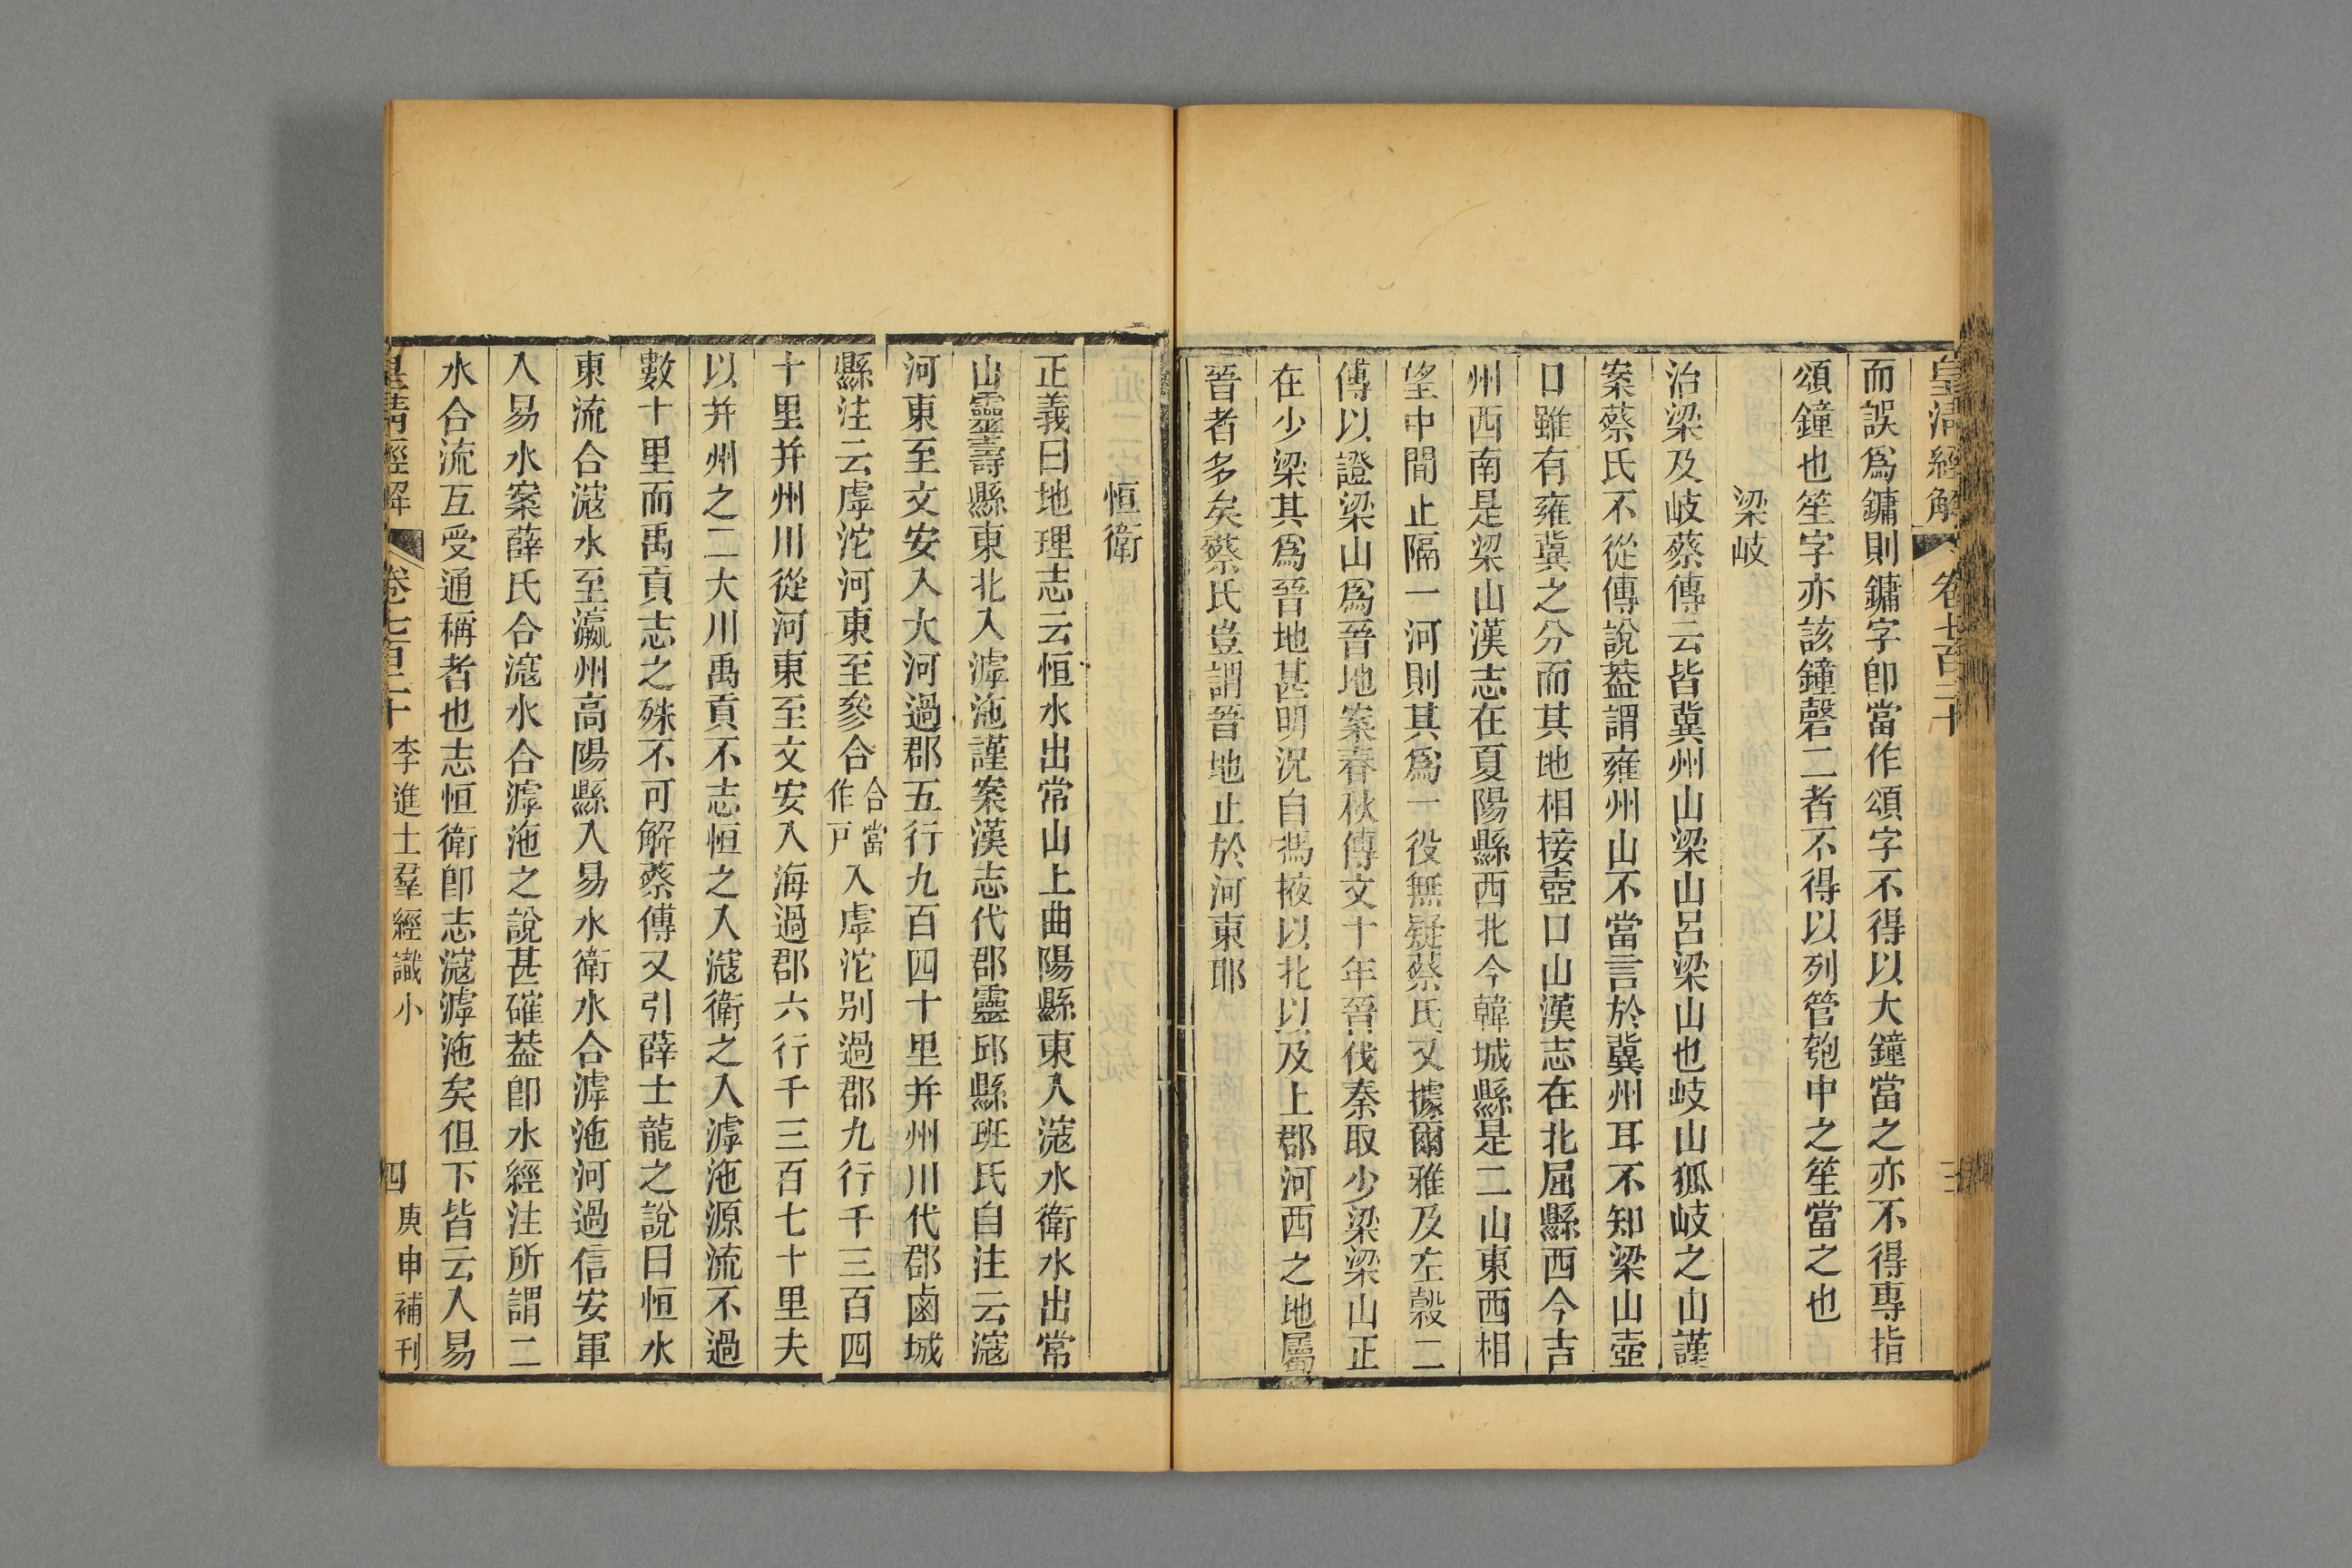 皇清經解 卷七百二十 三
而誤爲鏞則鏞字卽當作頌字不得以大鐘當之亦不得專指
頌鐘也笙字亦該鐘磬二者不得以列管匏中之笙當之也
梁岐
治梁及岐蔡傳云皆冀州山梁山呂梁山也岐山狐岐之山謹
案蔡氏不從傳說葢謂雍州山不當言於冀州耳不知梁山壺
口雖有雍冀之分而其地相接壺口山漢志在北屈縣西今吉
州西南是梁山漢志在夏陽縣西北今韓城縣是二山東西相
望中間止隔一河則其爲一役無疑蔡氏又據爾雅及左榖二
傳以證梁山爲晉地案春秋傳文十年晉伐秦取少梁梁山正
在少梁其爲晉地甚明況自馮掖以北以及上郡河西之地屬
晉者多矣蔡氏豈謂晉地止於河東耶
恒衛
正義曰地理志云恒水出常山上曲陽縣東入滱水衛水出常
山靈壽縣東北入滹沲謹案漢志代郡靈邱縣班氏自注云滱
河東至文安入大河過郡五行九百四十里并州川代郡鹵城
縣注云虖沱河東至參合合當作戸入虖沱別過郡九行千三百四
十里并州川從河東至文安入海過郡六行千三百七十里夫
以并州之二大川禹貢不志恒之入滱衛之入滹沲源流不過
數十里而禹貢志之殊不可解蔡傳又引薛士龍之說曰恒水
東流合滱水至瀛州高陽縣入易水衛水合滹沲河過信安軍
入易水案薛氏合滱水合滹沲之說甚確葢卽水經注所謂二
水合流互受通稱者也志恒衛卽志滱滹沲矣但下皆云入易
皇清經解 卷七百二十 李進士羣經識小 四 庚申補刊